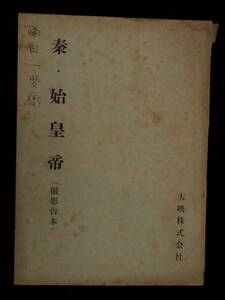 秦・始皇帝
(撮影台本)
大映株式会社